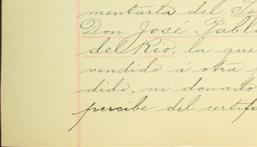 mentaría del Se
Don José Pabl
del Río, la que
vendido á otra p
dido, ni donado
percibe del certif